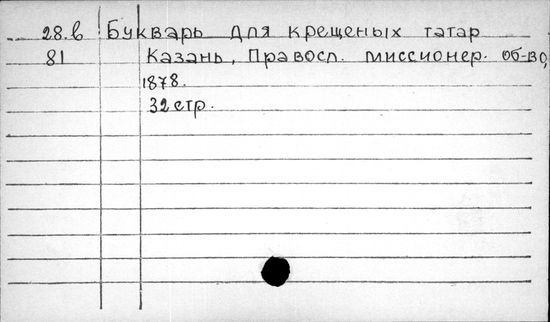 28.в Букварь для крещеных татар
81 Казань, Правосл. миссионер. об-во,
1878.
32 стр.